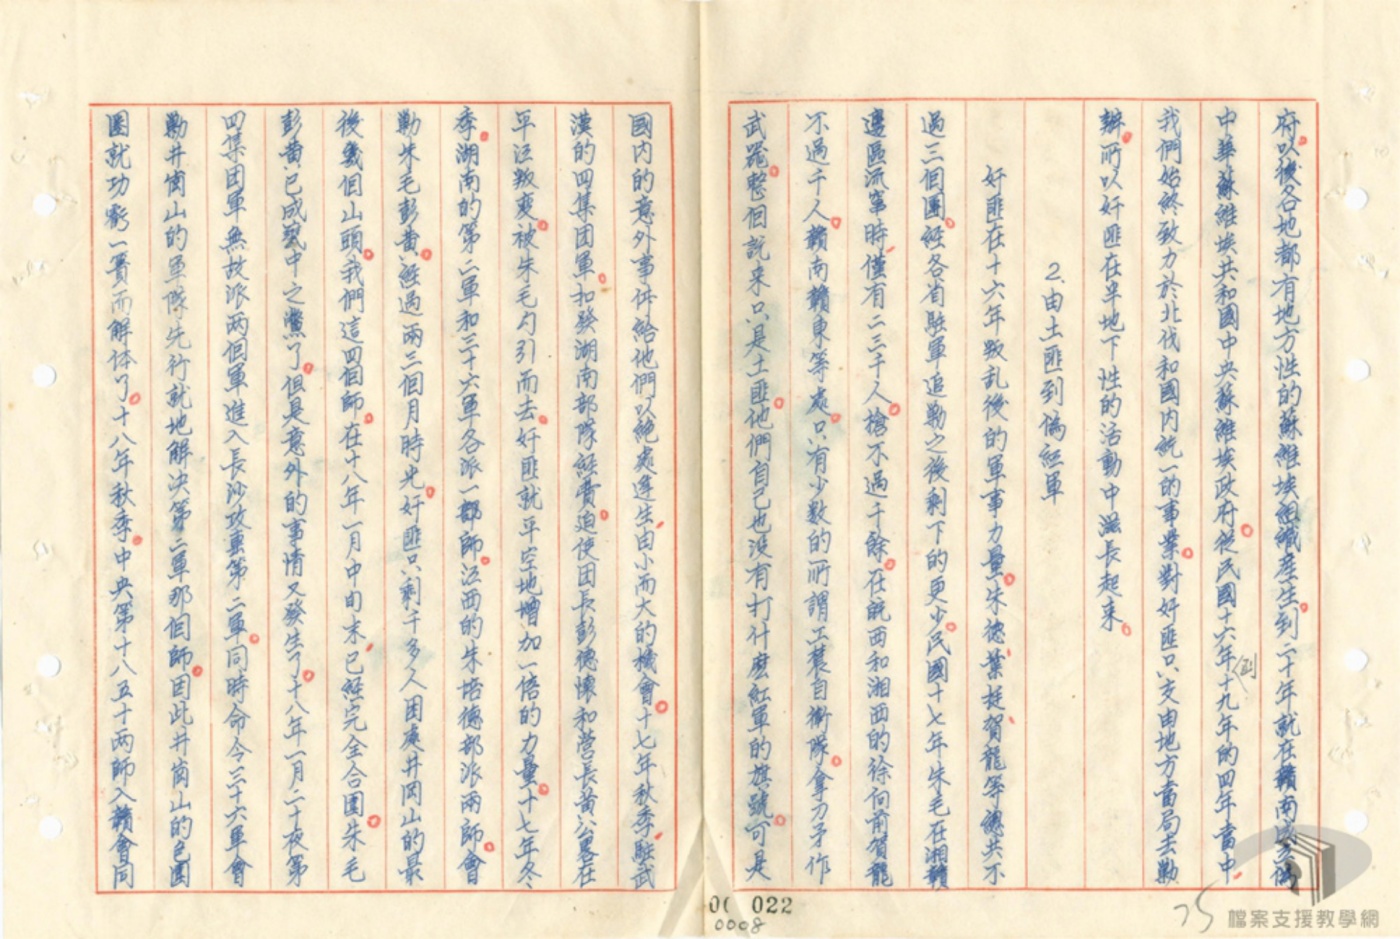 府以後各地都有地方性的蘇維埃組織產生到二十年就在贛南成立偽
中華蘇維埃共和國中央蘇維埃政府從民國十六年到十九年的四年當中
我們始終致力於北伐和國內統一的事業對奸匪只交由地方當局去勦
辦所以奸匪在半地下性的活動中滋長起來
2.由土匪到偽紅軍
奸匪在十六年叛乱後的軍事力量朱德葉挺賀龍等總共不
過三個團經各省駐軍追勦之後剩下的更少民國十七年朱毛在湘贛
邊區流竄時僅有二三千人槍不過千餘在既西和湘西的徐向前賀龍
不過千人贛南贛東等處只有少数的所謂工農自衛隊拿刀矛作
武器整個說来只是土匪他們自己也没有打什麽紅軍的旗號可是
國内的意外事件給他們以絕處逢生由小而大的機會十七年秋季駐武
漢的四集团軍扣發湖南部隊經費迫使团長彭德懷和营長黄公畧在
平江叛变被朱毛勾引而去奸匪就平空地增加一倍的力量十七年冬
季湖南的第二軍和三十六軍各派一部師江西的朱培德部派兩師會
勦朱毛彭黄經過兩三個月時光奸匪只剩千多人困庚井岡山的最
後幾個山頭我們這四個師在十八年一月中旬末已經完全合圍朱毛
彭黄已成甕中之鱉了但是意外的事情又發生了十八年一月二十夜第
四集团軍無故派兩個軍進入長沙攻襲第二軍同時命令三十六軍會
勦井崗山的軍隊先行就地解決第二軍那個師因此井崗山的包圍
圈就功虧一簣而解体了十八年秋季中央第十八五十兩師入贛會同
00 022
0008
75
檔案支援教學網